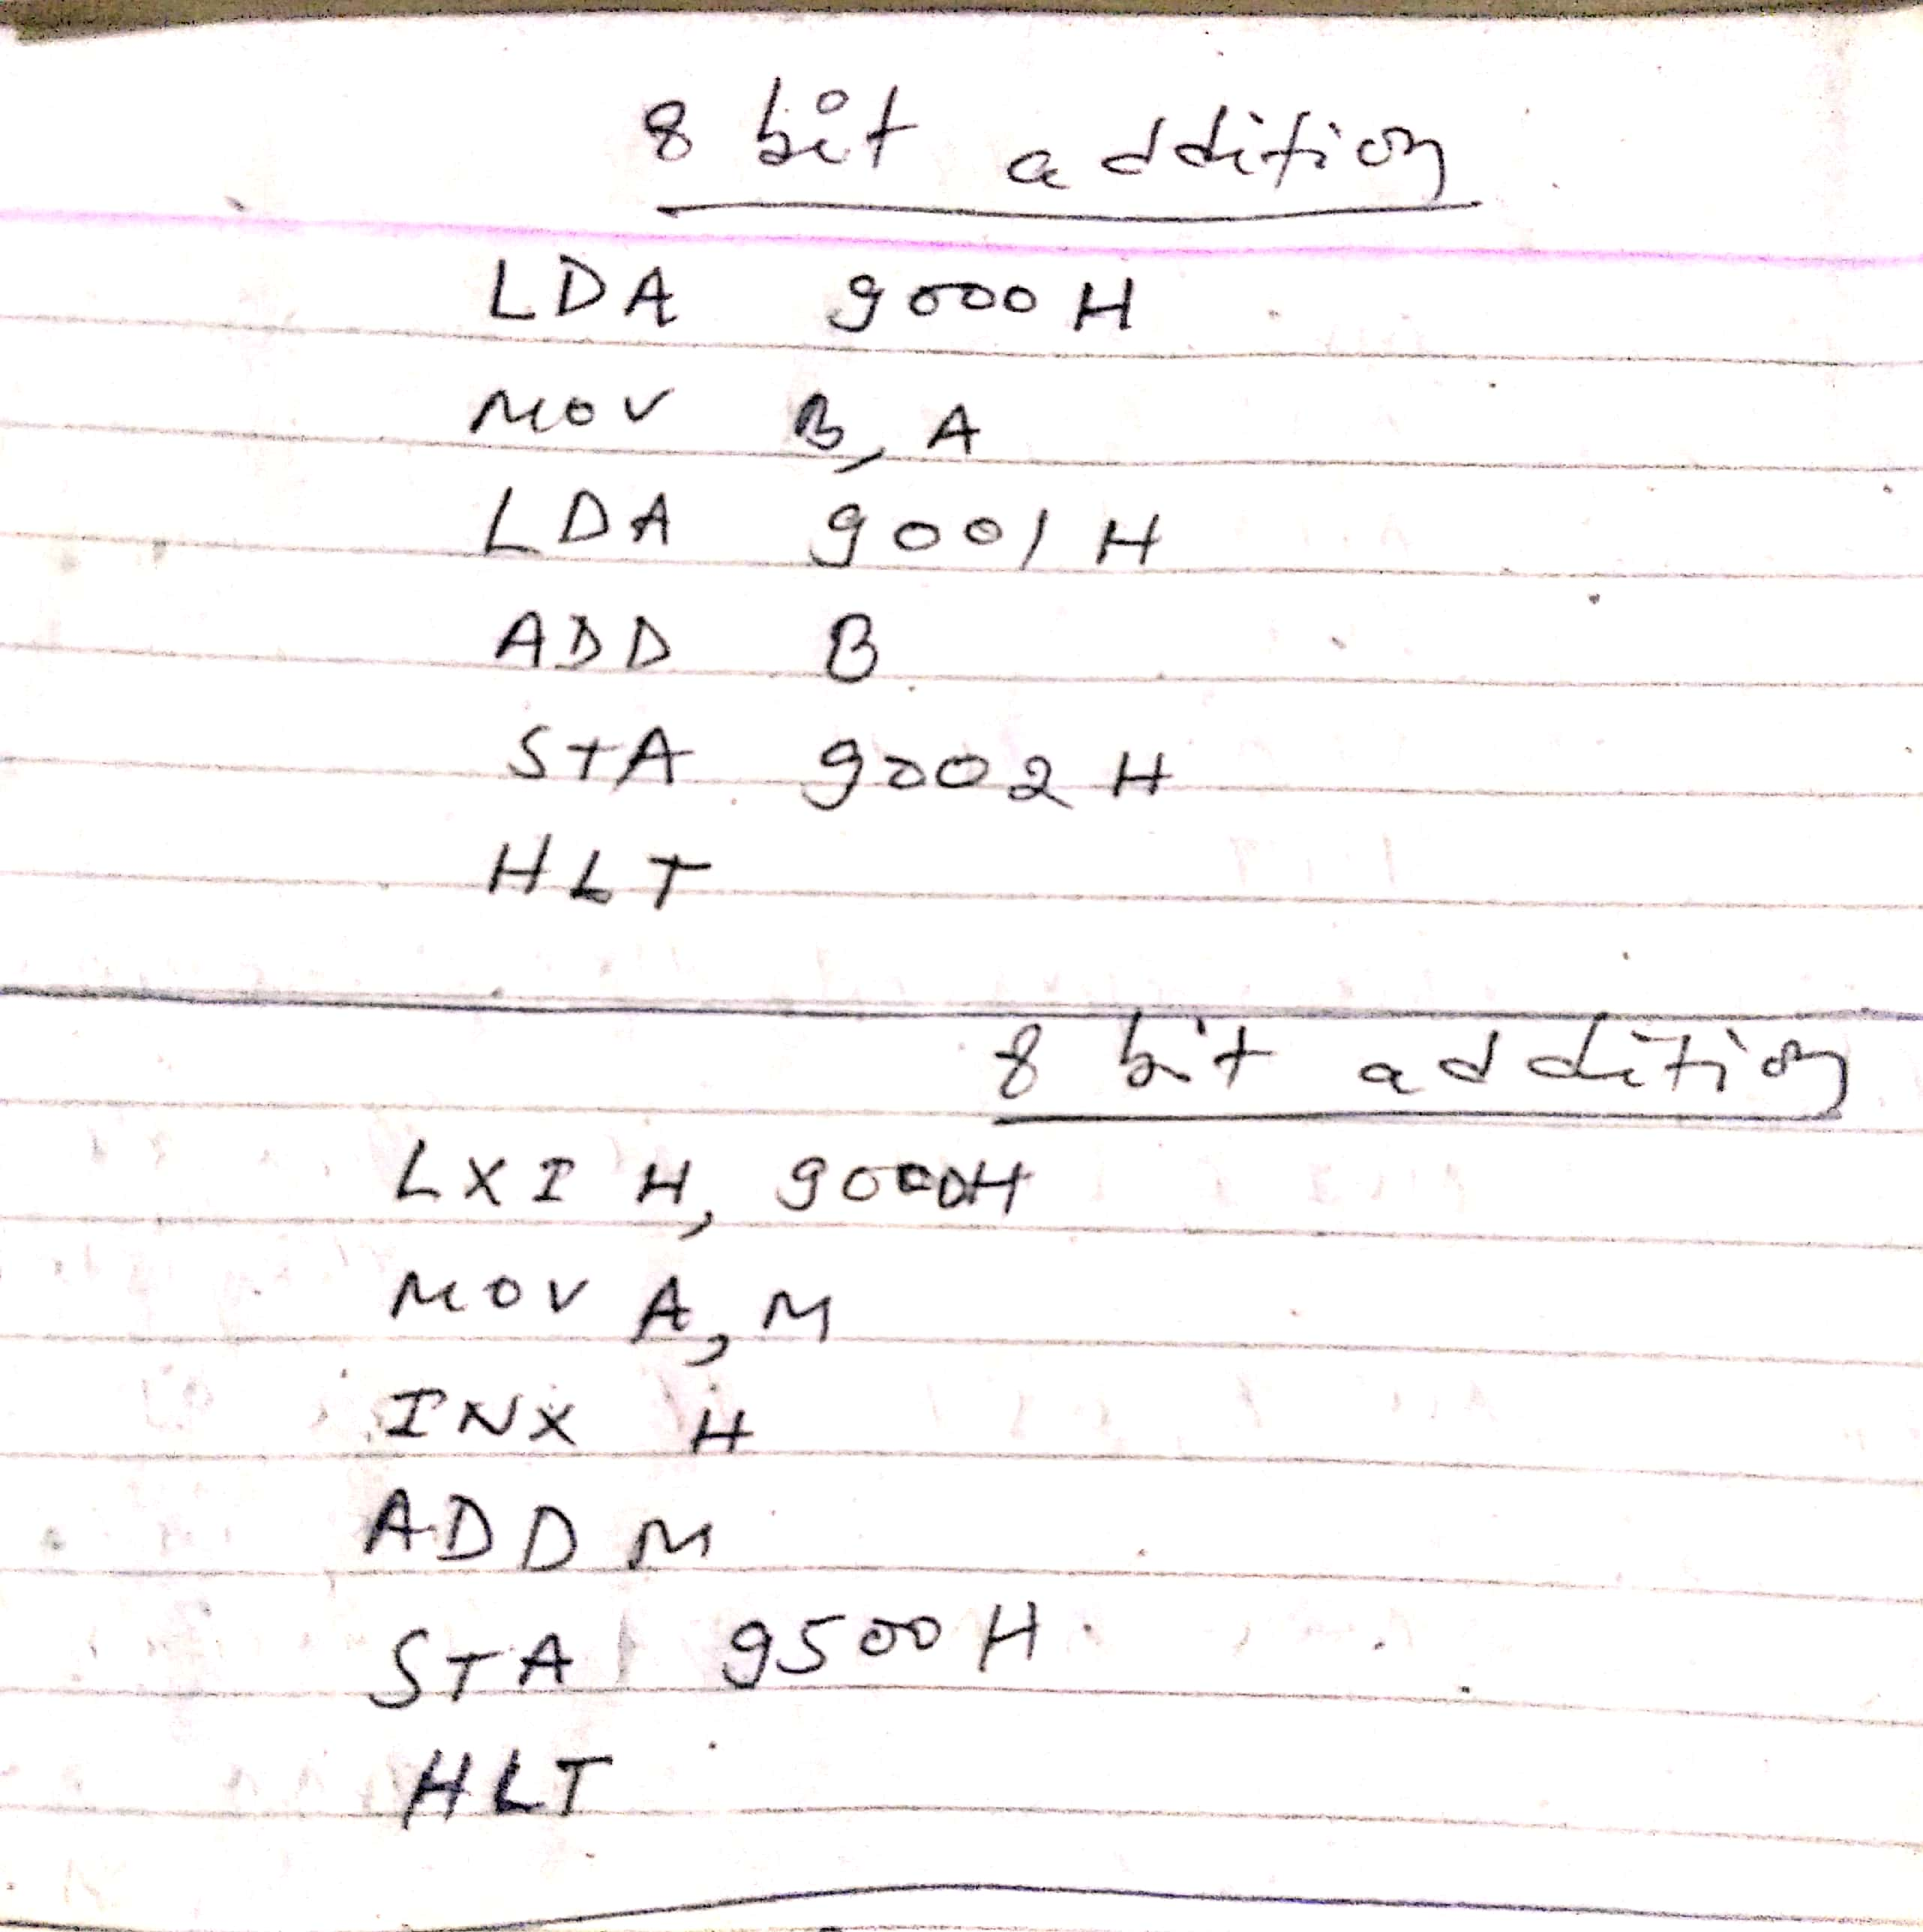 8 bit addition
LDA 9000 H
MOV B, A
LDA 9001 H
ADD B
STA 9002 H
HLT
8 bit addition
LXI H, 9000H
MOV A, M
INX H
ADD M
STA 9500 H
HLT